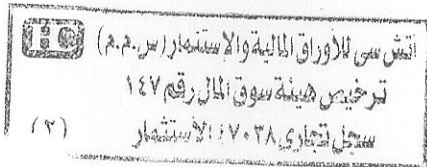 HC
اتش سى للأوراق المالية والاستثمار (س.م.م)
ترخيص هيئة سوق المال رقم ١٤٧
سجل تجارى ٤٧٠٣٨ الاستثمار
(٢)